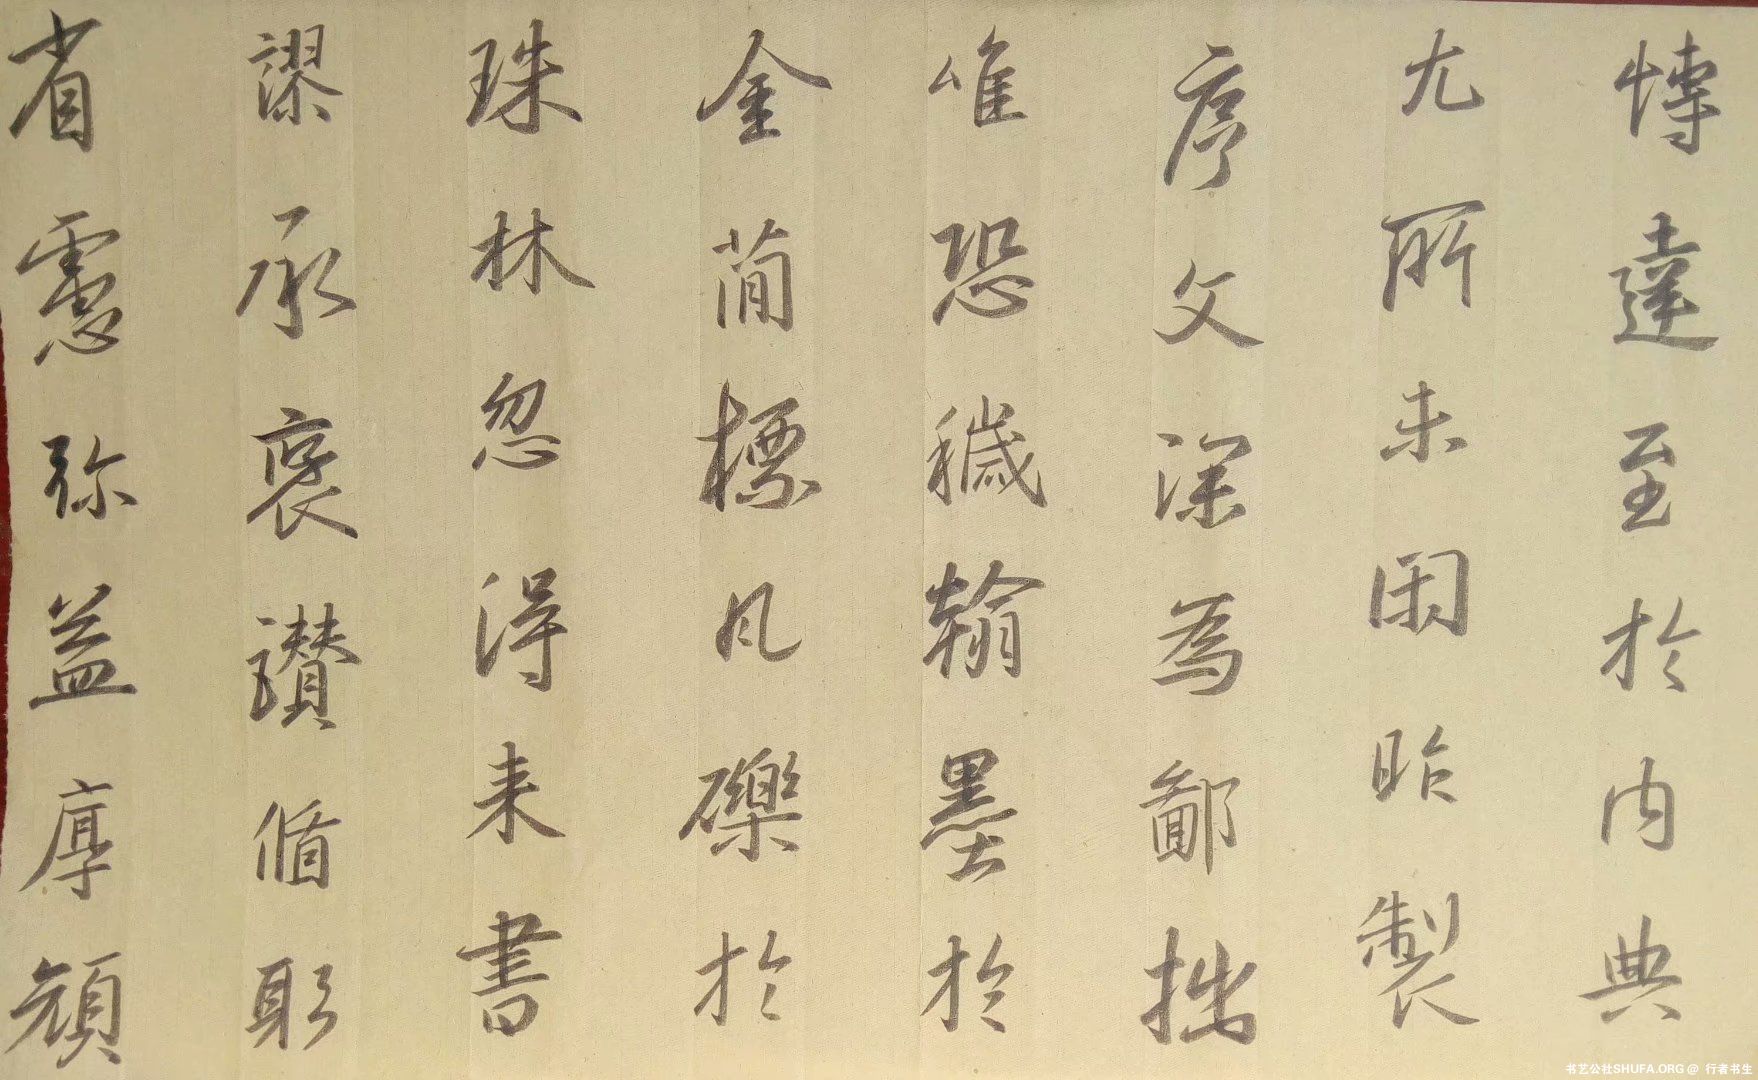 博達至於內典
尤所未閑昨製
序文深為鄙拙
唯恐穢翰墨於
金簡標凡礫於
珠林忽得来書
謬承褒讚循躬
省慮弥益厚顔
书艺公社SHUFA.ORG @ 行者书生